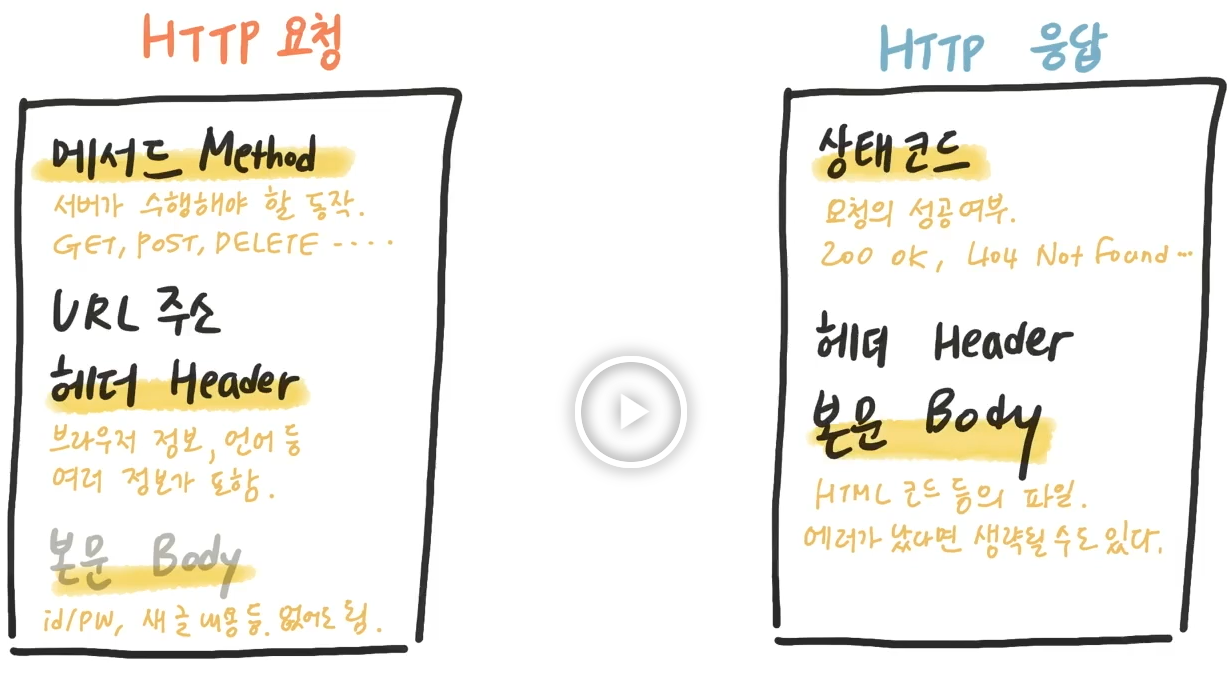 HTTP 요청
메서드 Method
서버가 수행해야 할 동작.
GET, POST, DELETE ----
URL 주소
헤더 Header
브라우저 정보, 언어 등
여러 정보가 포함.
본문 Body
id/PW, 새 글 내용 등. 없어도 됨.
HTTP 응답
상태 코드
요청의 성공 여부.
200 OK, 404 Not Found ...
헤더 Header
본문 Body
HTML 코드 등의 파일.
에러가 났다면 생략될 수도 있다.